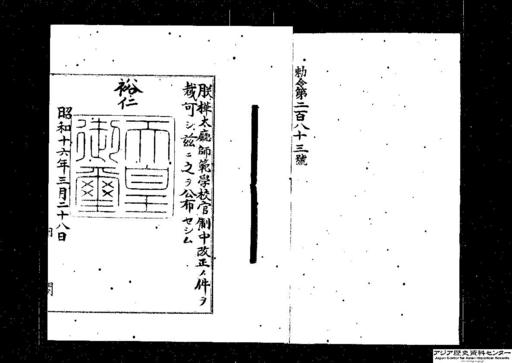 勅令第二百八十三號
朕樺太廳師範學校官制中改正ノ件ヲ
裁可シ茲ニ之ヲ公布セシム
裕仁
天皇
御璽
昭和十六年三月二十八日
内
閣
アジア歴史資料センター
Japan Center for Asian Historical Records